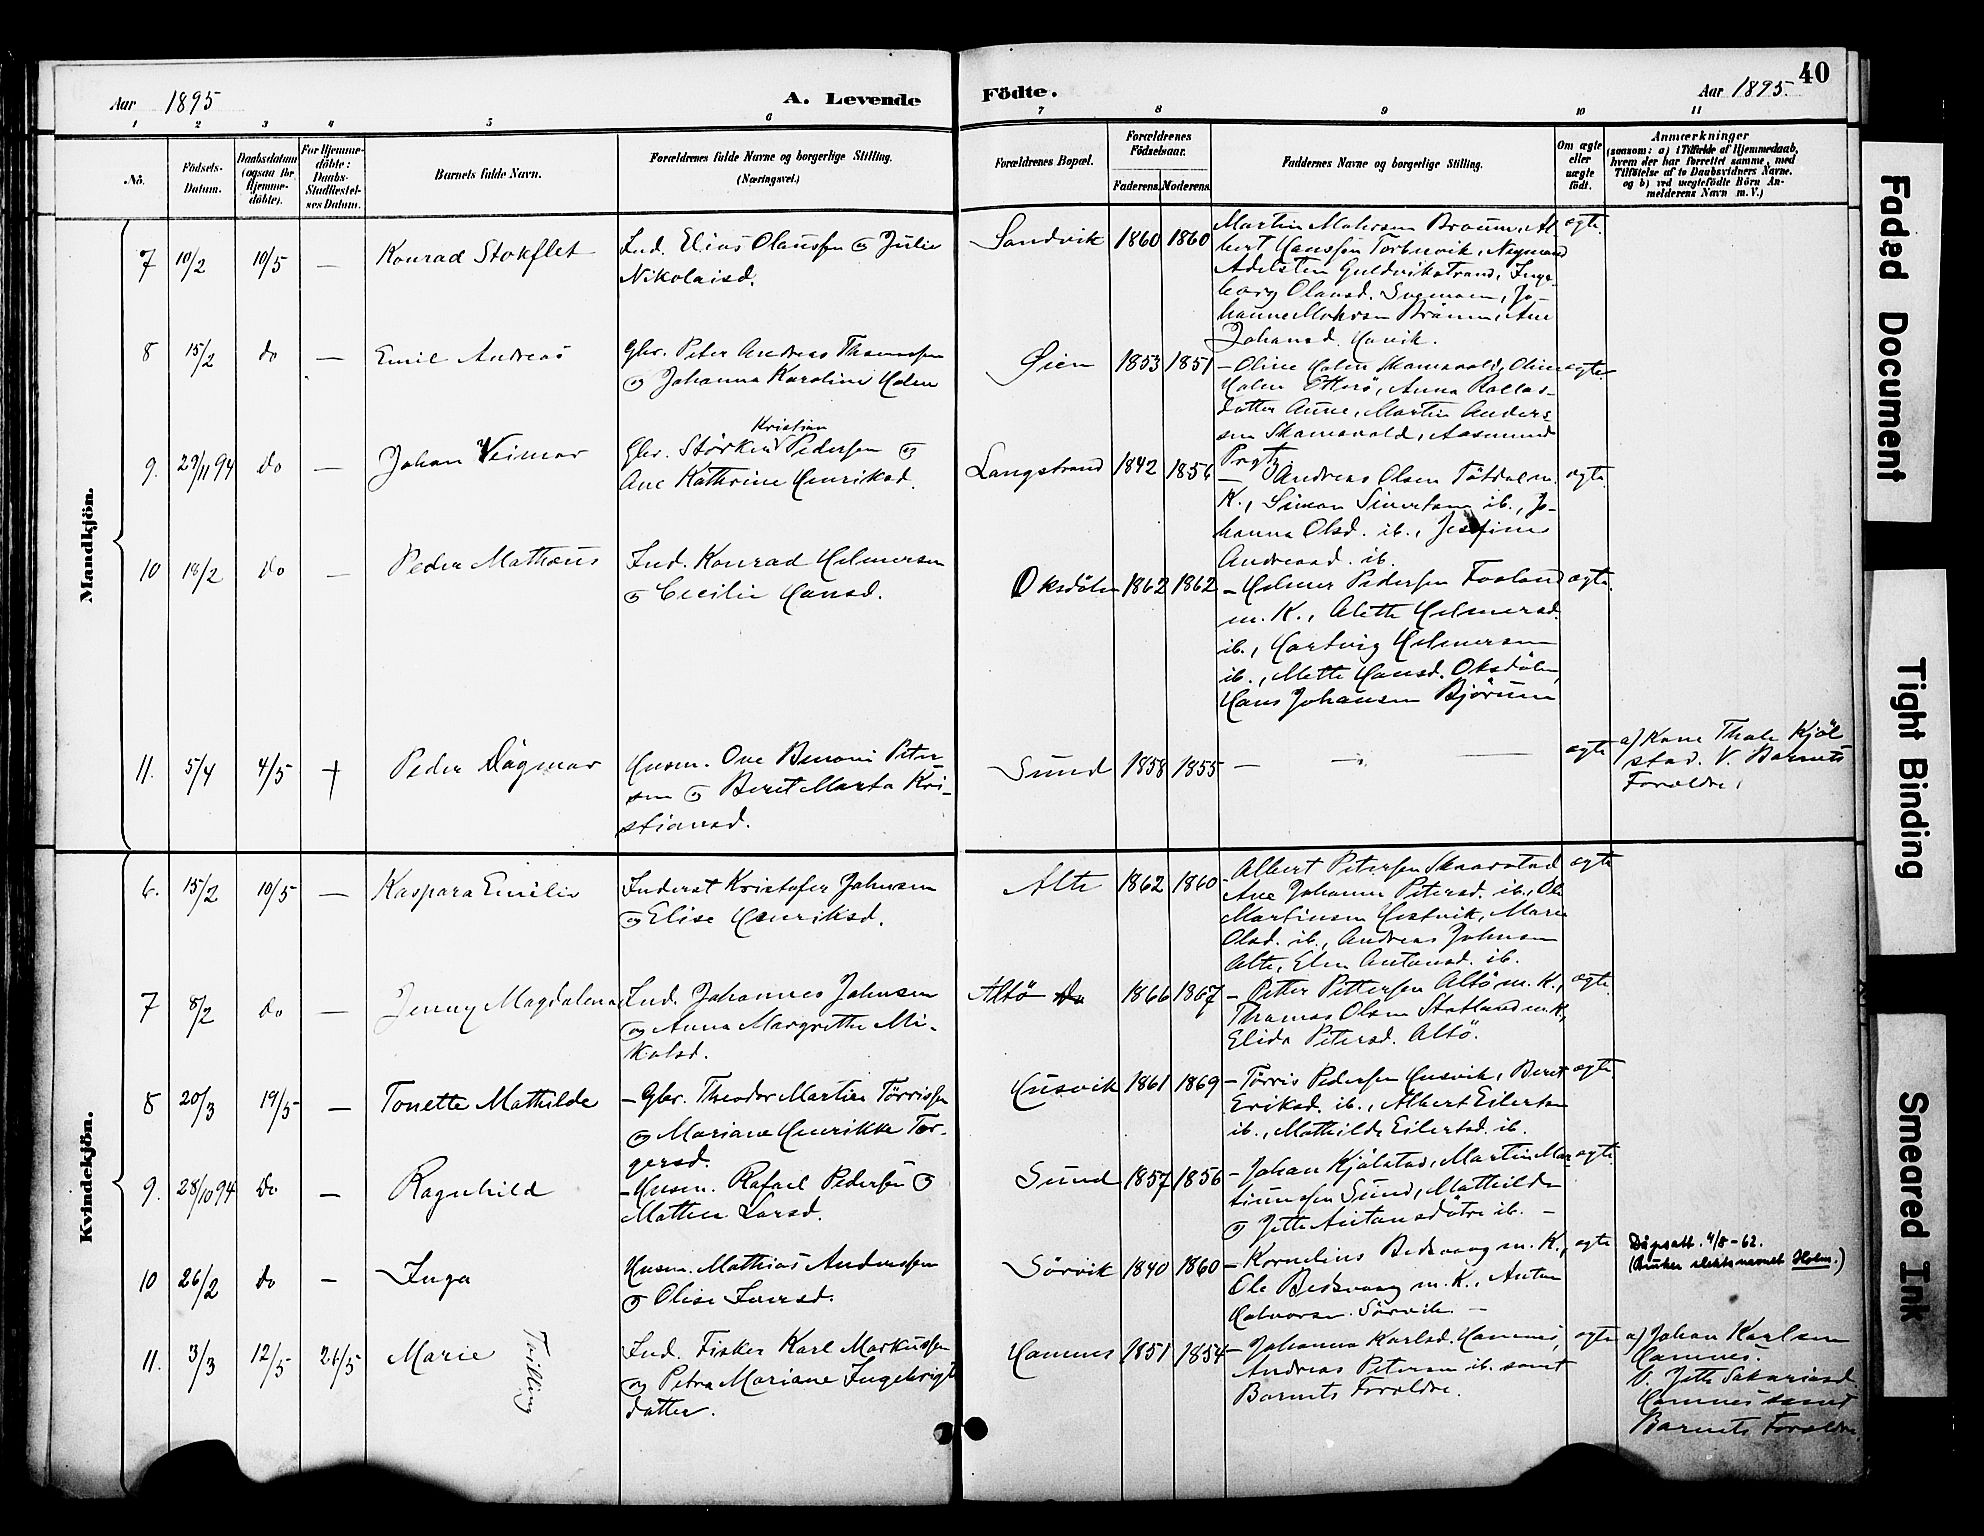 40
Aar 1895
A. Levende
Födte.
Aar 1895.
1 2 3 4 5 6 7 8 9 10 11
No.
Födsels-
Datum.
Daabsdatum
(ogsaa for
Hjemme-
döbte).
For Hjemme-
döbte:
Daabs-
Stadfæstel-
ses Datum.
Barnets fulde Navn.
Forældrenes fulde Navne og borgerlige Stilling.
(Næringsvei.)
Forældrenes Bopæl.
Forældrenes
Födselsaar.
Faderens. Moderens.
Faddernes Navne og borgerlige Stilling.
Om ægte
eller
uægte
födt.
Anmærkninger
(saasom: a) i Tilfælde af Hjemmedaab,
hvem der har forrettet samme, med
Tilföielse af to Daabsvidners Navne.
og b) ved uægtefödte Börn An-
melderens Navn m. V.)
Mandkjön.
7 10/2 10/5 — Konrad Stokflet
Ind. Elias Olaussen og Julie
Nikolaisd.
Sandvik 1860 1860
Martin Mohrsen Braum, Al
bert Hanssen Torbuvik,
Adelsten Guldvikstrand, Inge-
borg Olausd. Jo-
hanne Mohrsen Braum, Ane
Johansd.
ægte.
8 15/2 do — Emil Andreas
Gbr. Peter Andreas Thomassen
og Johanna Karoline Holm
Øien 1853 1851
— Oline Holm Oline
Holm Otterö, Anna
datter Aune, Martin Anders-
sen Aasmund
ægte
9. 29/11 94 do — Johan Veimar
Kristian
Gbr. Störker Pedersen og
Ane Kathrine Henriksd.
Langstrand 1842 1856
— Andreas Olsen Tötdal m.
K., Simon Sivertsen ib., Jo-
hanna Olsd. ib., Josefine
Andreasd. ib.
ægte.
10 18/2 do — Peder Mathæus
Ind. Konrad Helmersen
og Cecilie Hansd.
Oksdölen 1862 1862
— Helmer Pedersen Fosland
m. K., Alette Helmersd.
ib., Hartvig Helmersen
ib., Mette Hansd. Oksdölen,
Hans Johansen Björum
ægte.
11. 5/4 4/5 † Peder Dagmar
Husm. Ove Benoni Peter
sen og Beret Marta Kri-
stiansd.
Sund 1858 1855 — — —
ægte
a) Kone Thale Kjöl
stad. V. Barnets
Forældre.
Kvindekjön.
6. 15/2 10/5 — Kaspara Emilie
Inderst Kristofer Johnsen
og Elise Henriksd.
Alte 1862 1860
— Albert Petersen Skaarstad
Ane Johanna Petersd. ib., Ole
Martinsen Hestvik, Marie
Olsd. ib., Andreas Johnsen
Alte, Elen Antonsd. ib.
ægte
7 8/2 do — Jenny Magdalena
Ind. Johannes Johnsen
og Anna Margrethe Mi-
kalsd.
Altö do 1866 1867
— Petter Pettersen Altö m. K.,
Thomas Olsen Statland m. K.,
Elida Petersd. Altö.
ægte.
8 20/3 19/5 — Tonette Mathilde
— Gbr. Theodor Martin Törrissen
og Mariane Henrikke Tor-
gersd.
Husvik 1861 1869
— Törris Pedersen Husvik, Beret
Eriksd. ib., Albert Eilertsen
ib., Mathilde Eilertsd. ib.
ægte.
9. 28/10 94 do — Ragnhild
— Husm. Rafael Pedersen og
Mathea Larsd.
Sund 1857 1856
— Johan Kjölstad, Martin Mar
tinussen Sund, Mathilde
og Jette Antonsdötre ib. —
ægte.
10 26/2 do — Inga
Husm. Mathias Anderssen
og Olise Iversd.
Sörvik 1840 1860
— Kornelius Bedsvaag m. K.,
Ole Bedsvaag m. K., Anton
Halvorsen Sörvik. —
ægte
Dåpsatt. 4/8-62.
(Bruker slektsnavnet Holm.)
11. 3/3 12/5 26/5 Marie
Tvilling
Ind. Fisker Karl Markussen
og Petra Mariane Ingebrigts
datter.
Hamnes 1851 1854
— Johanna Karlsd. Hamnes,
Andreas Petersen ib. samt
Barnets Forældre.
ægte
a) Johan Karlsen
Hamnes.
V. Jette Sakariasd.
Hamnes samt
Barnets Forældre.
Faded Document
Tight Binding
Smeared Ink